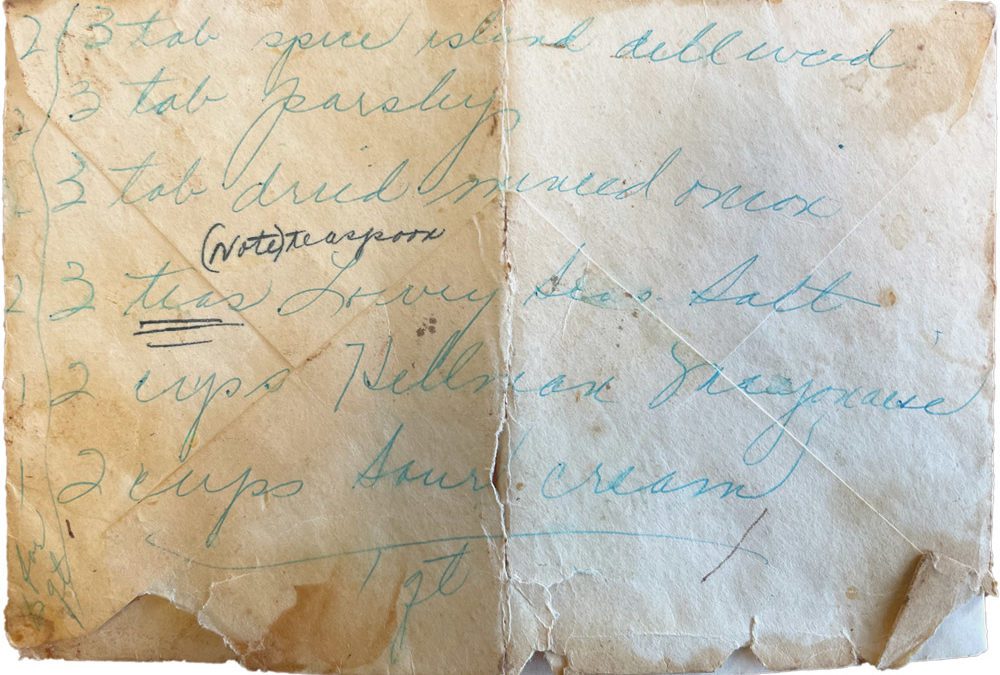 2 3 tab spice island dillweed
2 3 tab parsley
2 3 tab dried minced onion
(Note) teaspoon
2 3 teas Lowery Seas. Salt
1 2 cups Hellman Mayonaise
1 2 cups Sour cream
for
1 qt